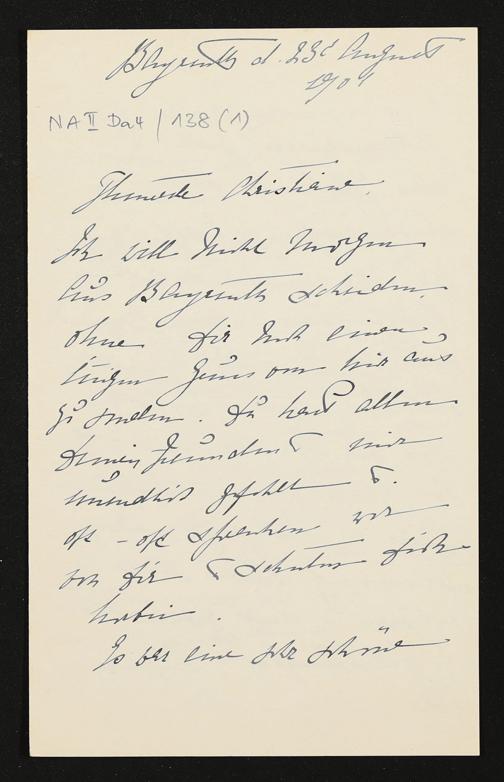 Bayreuth d. 23t August
1901
NA II Da4 / 138 (1)
Christiane,
Ich will nicht morgen
aus Bayreuth scheiden,
ohne Dir noch einen
Gruss von hier aus
zu senden. Du hast allen
Deinen Freunden & mir
unendlich gefehlt &
oft – oft sprachen wir
von Dir & sehnten Dich
herbei.
Es war eine sehr schöne